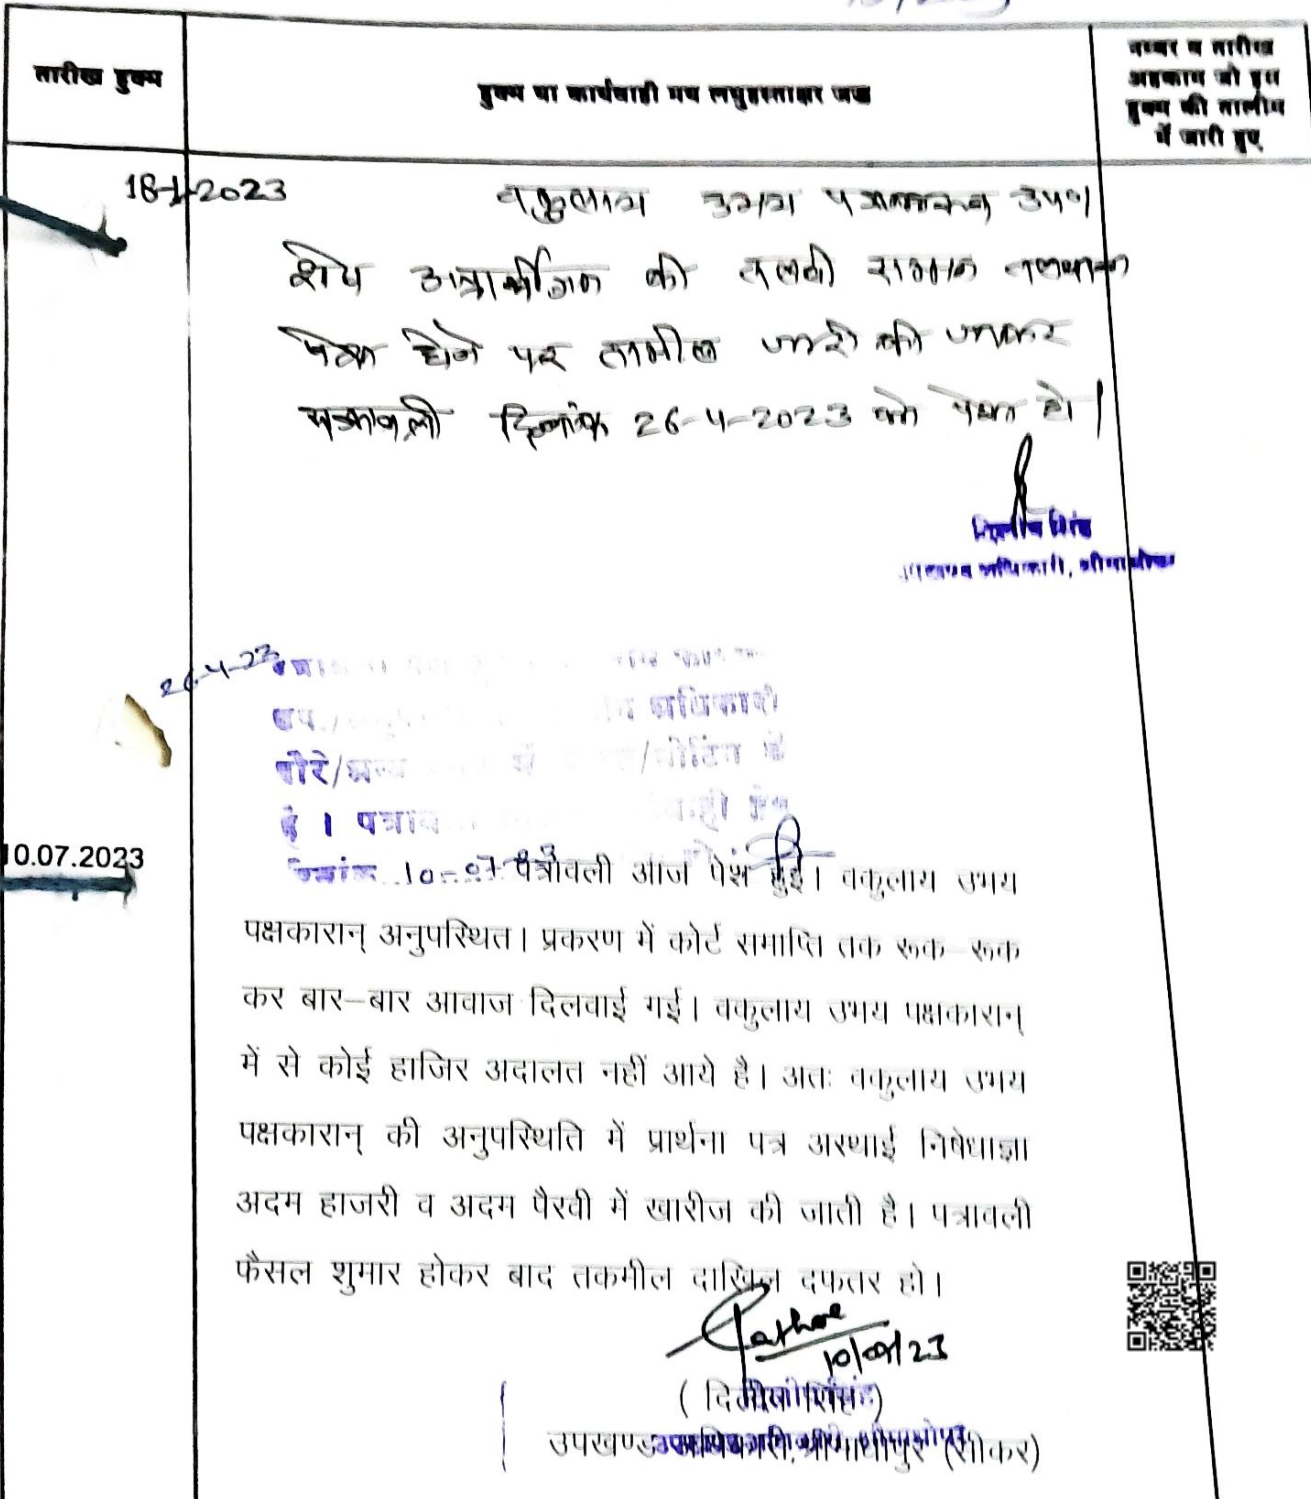 तारीख हुक्म
हुक्म या कार्यवाही मय लघुहस्ताक्षर जज
नम्बर व तारीख
अहकाम जो इस
हुक्म की तालीम
में जारी हुए
18-1-2023 वकुलाय उभय पक्षकारान उप०।
शेष अप्रार्थीगण की तलवी सम्मन तलवाना
पेश होने पर तामील जारी की जाकर
पत्रावली दिनांक 26-4-2023 को पेश हो।
दिलीप सिंह
उपखण्ड अधिकारी, श्रीमाधोपुर
26-4-23
अधिकारी
दौरे/अन्य में /मीटिंग में
है। पत्राव
दिनांक 10-07-23
10.07.2023
पत्रावली आज पेश हुई। वकुलाय उभय
पक्षकारान् अनुपस्थित। प्रकरण में कोर्ट समाप्ति तक रूक–रूक
कर बार–बार आवाज दिलवाई गई। वकुलाय उभय पक्षकारान्
में से कोई हाजिर अदालत नहीं आये है। अतः वकुलाय उभय
पक्षकारान् की अनुपस्थिति में प्रार्थना पत्र अस्थाई निषेधाज्ञा
अदम हाजरी व अदम पैरवी में खारीज की जाती है। पत्रावली
फैसल शुमार होकर बाद तकमील दाखिल दफतर हो।
10/07/23
( दिलीप सिंह )
उपखण्ड अधिकारी, श्रीमाधोपुर (सीकर)